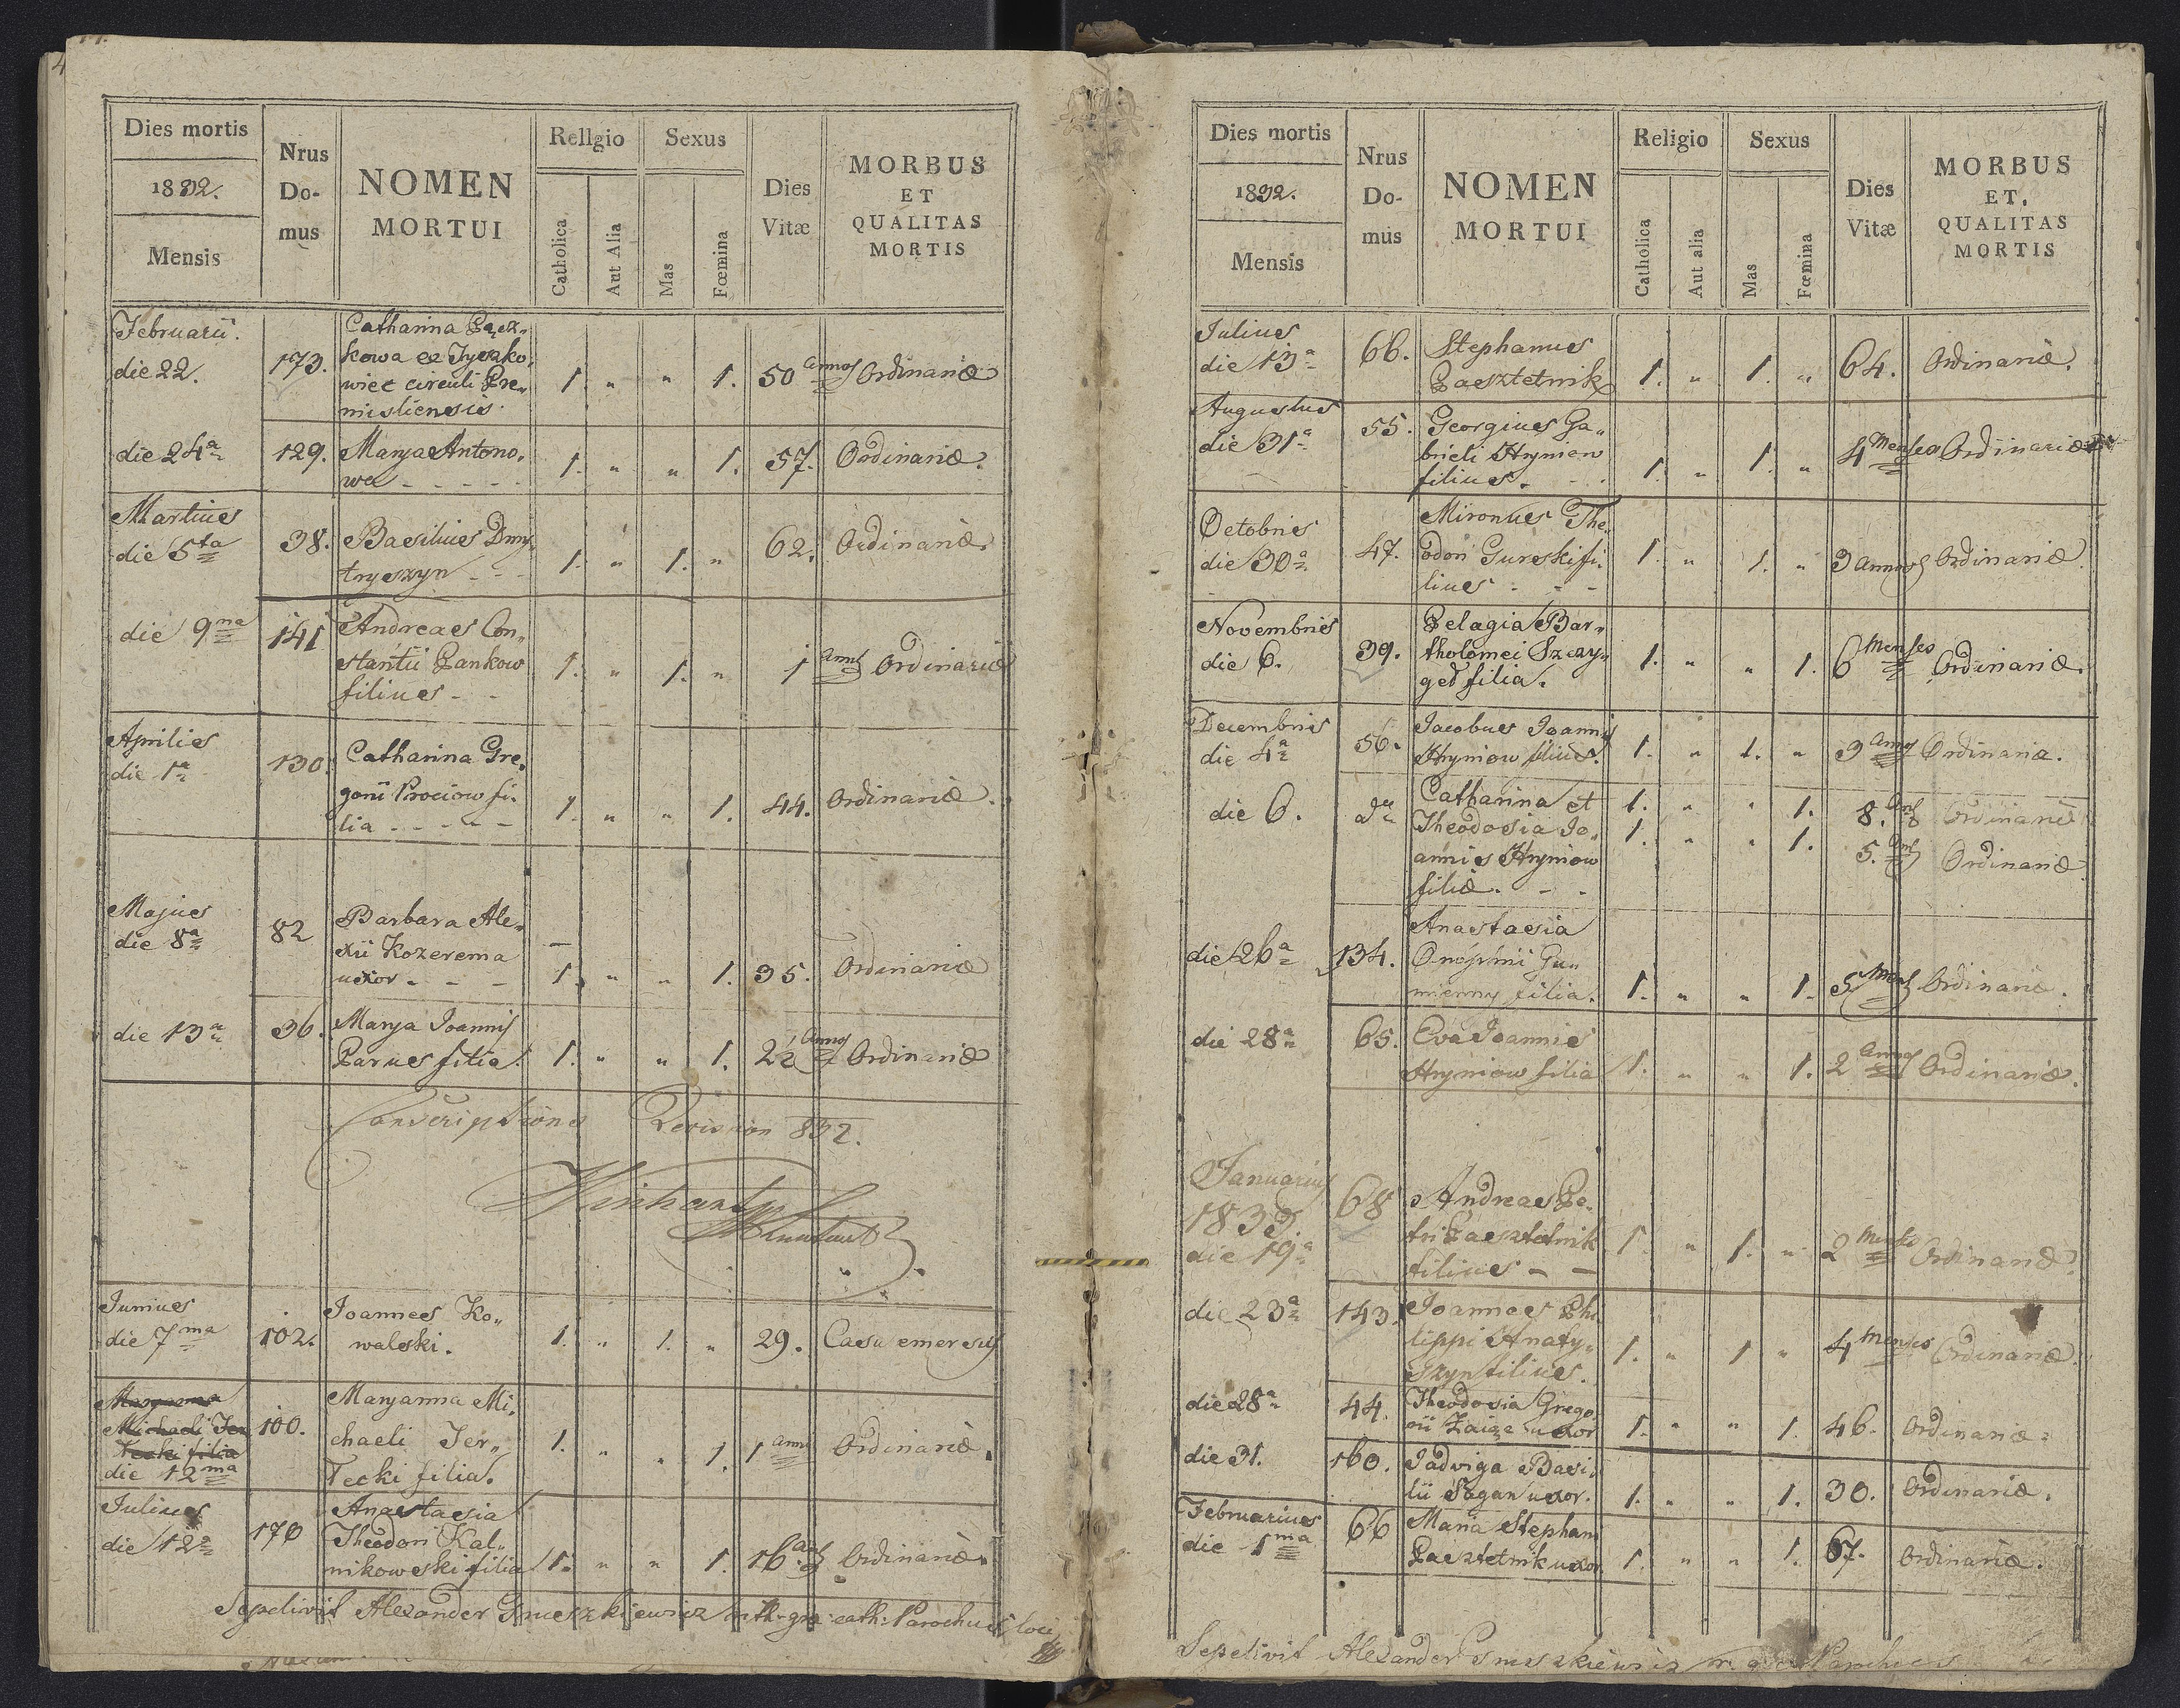 Dies mortis
1832.
Mensis
Nrus
Do-
mus
NOMEN
MORTUI
Rellgio
Catholica
Aut Alia
Sexus
Mas
Fœmina
Dies
Vitæ
MORBUS
ET
QUALITAS
MORTIS
Februarii
Catharina
die 22. 173. kowa ex
circuli Pre„
misliensis 1. „ „ 1. 50 annos Ordinariæ
die 24a 129. Marya Antono„
wa - - - - 1. „ „ 1. 57. Ordinariæ.
Martius
die 5ta 38. Basilius Dmy„
tryszyn - - 1. „ 1. „ 62. Ordinariæ
die 9na 141 Andreas Con„
stantii Pankow
filius - - 1. „ 1. „ 1 Anni Ordinariæ
Aprilis
die 1a 130. Catharina Gre„
gorii Prociow fi„
lia - - - - - 1. „ „ 1. 44. Ordinariæ.
Majus
die 8a 82 Barbara Ale„
xii Kozerema
uxor - - - 1. „ „ 1. 35. Ordinariæ
die 13a 36. Marya Joannis
Parus filia. 1. „ „ 1. 22 Annos Ordinariæ
Conscriptions Revision 832.
Junius
die 7ma 102. Joannes Ko„
walski. 1. „ 1. „ 29. Casu emersus
Maryanna
Michaeli Ter
tecki filia
die 12ma 100. Maryanna Mi„
chaeli Ter„
tecki filia. 1. „ „ 1. 1 anni Ordinariæ.
Julius
die 12a 170 Anastasia
Theodori Kal„
nikowski filia 1. „ „ 1. 16 an Ordinariæ.
Sepelivit Alexander rith: gra: cath: Parochus loci
Dies mortis
1832.
Mensis
Nrus
Do-
mus
NOMEN
MORTUI
Religio
Catholica
Aut alia
Sexus
Mas
Fœmina
Dies
Vitæ
MORBUS
ET.
QUALITAS
MORTIS
Julius
die 13a 66. Stephanus
Pasztetnik 1. „ 1. „ 64. Ordinariæ.
Augustus
die 31a 55. Georgius Ga„
brieli Hryniow
filius. - - 1. „ 1. „ 4 Menses Ordinariæ
Octobris
die 30a 47. Mironus The„
odori Gurski fi„
lius - - - 1. „ 1. „ 3 annos Ordinariæ.
Novembris
die 6. 39. Pelagia Bar„
tholomei Szczy„
geł filia. 1. „ „ 1. 6 Menses Ordinariæ.
Decembris
die 4a 56. Jacobus Joannis
Hryniow filius. 1. „ 1. „ 3 Annos Ordinaria.
die 6. Catharina et 1. „ „ 1. 8. Ordinariæ
Theodosia Jo„ 1. „ „ 1. 5. Ordinariæ.
annis Hryniow
filiæ. - -
die 26a 134. Anastasia
Onophrii Gu„
mienny filia. 1. „ „ 1. 5 Mens Ordinariæ.
die 28a 65. Eva Joannis
Hryniow filia 1. „ „ 1. 2 Annos Ordinariæ.
Januarius
1833.
die 19a 68 Andreas Pe„
tri Pasztetnik
filius - - 1. „ 1. „ 2 Menses Ordinariæ.
die 23a 143. Joannes Phi„
lippi Hnaty„
szyn filius. 1. „ 1 „ 4 Menses Ordinariæ.
die 28a 44. Theodosia Grego„
rii Zaiąc uxor 1. „ „ 1. 46. Ordinariæ.
die 31. 160. Jadviga Basi„
lii Sagan uxor. 1. „ „ 1. 30. Ordinariæ.
Februarius
die 1ma 66 Maria Stephani
Pasztetnik uxor 1. „ „ 1. 67. Ordinariæ.
Sepelivit Alexander Parochus